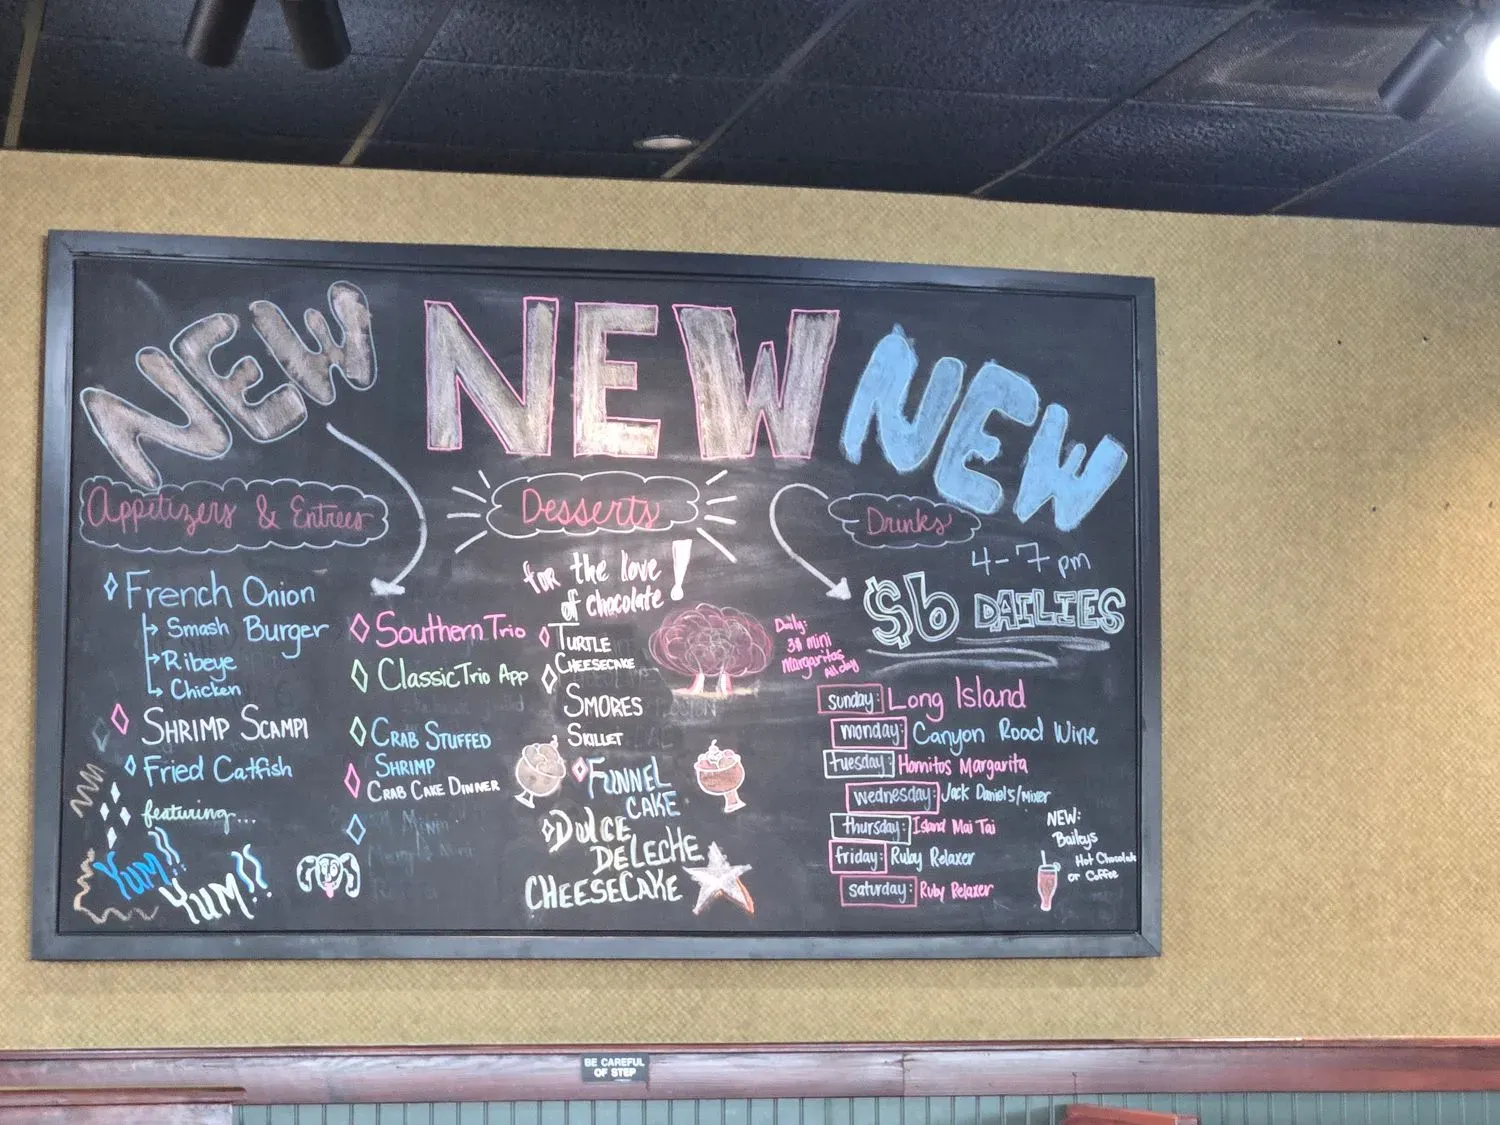 NEW
Appetizers & Entrees
French Onion
Smash Burger
Ribeye
Chicken
SHRIMP SCAMPI
Fried Catfish
featuring...
YUM!!
YUM!!
Southern Trio
Classic Trio App
CRAB STUFFED
SHRIMP
CRAB CAKE DINNER
NEW
Desserts
for the love
of chocolate!
TURTLE
CHEESECAKE
SMORES
SKILLET
FUNNEL
CAKE
DULCE
DELECHE
CHEESECAKE
NEW
Drinks
4-7 pm
$6 DAILIES
Daily:
mini
Margaritas
All day
Sunday: Long Island
monday: Canyon Road Wine
tuesday: Hornitos Margarita
wednesday: Jack Daniel's/mixer
thursday: Island Mai Tai
friday: Ruby Relaxer
saturday: Ruby Relaxer
NEW:
Baileys
Hot Chocolate
or Coffee
BE CAREFUL
OF STEP